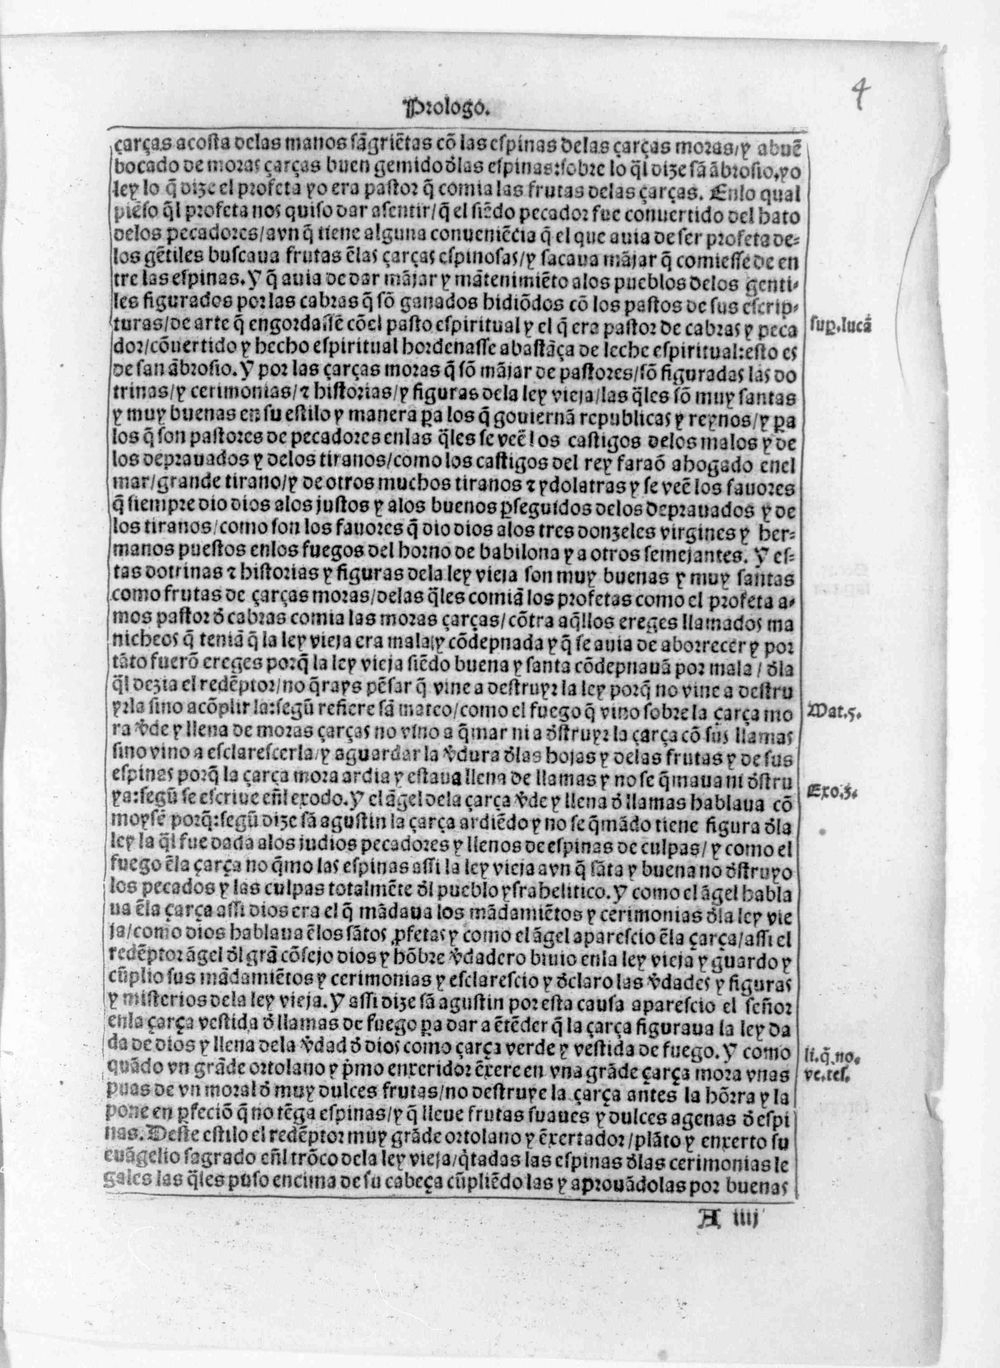 4
Prologo.
çarças acosta delas manos sãgriẽtas cõ las espinas delas çarças moras/y abuẽ
bocado de moras çarças buen gemido đlas espinas:sobre lo q̃l dize sã ãbrosio.yo
ley lo q̃ dize el profeta yo era pastor q̃ comia las frutas delas çarças. Enlo qual
piẽso q̃l profeta nos quiso dar asentir/q̃ el siẽdo pecador fue convertido del hato
delos pecadores/avn q̃ tiene alguna conveniẽcia q̃ el que auia de ser profeta de-
los gẽtiles buscaua frutas ẽlas çarças espinosas/y sacaua mãjar q̃ comiesse de en
tre las espinas. Y q̃ auia de dar mãjar y mãtenimiẽto alos pueblos delos genti-
les figurados por las cabras q̃ sõ ganados hidiõdos cõ los pastos de sus escrip-
turas/de arte q̃ engordassẽ cõel pasto espiritual y el q̃ era pastor de cabras y peca
dor/cõuertido y hecho espiritual hordenasse abastãça de leche espiritual:esto es
de san ãbrosio. Y por las çarças moras q̃ sõ mãjar de pastores/sõ figuradas las do
trinas/y cerimonias/⁊ historias/y figuras dela ley vieja/las q̃les sõ muy santas
y muy buenas en su estilo y manera p̱a los q̃ gouiernã republicas y reynos/y p̱a
los q̃ son pastores de pecadores enlas q̃les se veẽ los castigos delos malos y de
los deprauados y delos tiranos/como los castigos del rey faraõ ahogado enel
mar/grande tirano/y de otros muchos tiranos ⁊ ydolatras y se veẽ los fauores
q̃ siempre dio dios alos justos y alos buenos p̱seguidos delos deprauados y de
los tiranos/como son los fauores q̃ dio dios alos tres donzeles virgines y her-
manos puestos enlos fuegos del horno de babilona y a otros semejantes. Y es-
tas dotrinas ⁊ historias y figuras dela ley vieja son muy buenas y muy santas
como frutas de çarças moras/delas q̃les comiã los profetas como el profeta a-
mos pastor đ cabras comia las moras çarças/cõtra aq̃llos ereges llamados ma
nicheos q̃ teniã q̃ la ley vieja era mala/y cõdepnada y q̃ se auia de aborrecer y por
tãto fuerõ ereges porq̃ la ley vieja siẽdo buena y santa cõdepnauã por mala/đla
q̃l dezia el redẽptor/no q̃rays pẽsar q̃ vine a destruyr la ley porq̃ no vine a destru
yrla sino acõplir la:segũ refiere sã mateo/como el fuego q̃ vino sobre la çarça mo
ra v̾de y llena de moras çarças no vino a q̃mar ni a đstruyr la çarça cõ sus llamas
sino vino a esclarescerla/y aguardar la v̾dura đlas hojas y delas frutas y de sus
espinas porq̃ la çarça mora ardia y estaua llena de llamas y no se q̃maua ni đstru
ya:segũ se escriue eñl exodo. Y el ãgel dela çarça v̾de y llena đ llamas hablaua cõ
moysẽ porq̃:segũ dize sã agustin la çarça ardiẽdo y no se q̃mãdo tiene figura đla
ley la q̃l fue dada alos judios pecadores y llenos de espinas de culpas/y como el
fuego ẽla çarça no q̃mo las espinas assi la ley vieja avn q̃ sãta y buena no đstruyo
los pecados y las culpas totalmẽte đl pueblo ysrahelitico. Y como el ãgel habla
ua ẽla çarça assi dios era el q̃ mãdaua los mãdamiẽtos y cerimonias đla ley vie
ja/como dios hablaua ẽlos sãtos ꝓfetas y como el ãgel aparescio ẽla çarça/assi el
redẽptor ãgel đl grã cõsejo dios y hõbre v̾dadero biuio enla ley vieja y guardo y
cũplio sus mãdamiẽtos y cerimonias y esclarescio y đclaro las v̾dades y figuras
y misterios dela ley vieja. Y assi dize sã agustin por esta causa aparescio el señor
enla çarça vestida đ llamas de fuego p̱a dar a ẽtẽder q̃ la çarça figuraua la ley da
da de dios y llena dela v̾dad đ dios como çarça verde y vestida de fuego. Y como
quãdo vn grãde ortolano y p̃mo enxeridor ẽxere en vna grãde çarça mora vnas
puas de vn moral đ muy dulces frutas/no destruye la çarça antes la hõrra y la
pone en p̱feciõ q̃ no tẽga espinas/y q̃ lleue frutas suaues y dulces agenas đ espi
nas. Deste estilo el redẽptor muy grãde ortolano y ẽxertador/plãto y enxerto su
euãgelio sagrado eñl trõco dela ley vieja/q̃tadas las espinas đlas cerimonias le
gales las q̃les puso encima de su cabeça cũpliẽdo las y aprouãdolas por buenas
sup̱.lucã
Mat.5.
Exo.3.
li.q̃.no.
ve.tes.
A iiij